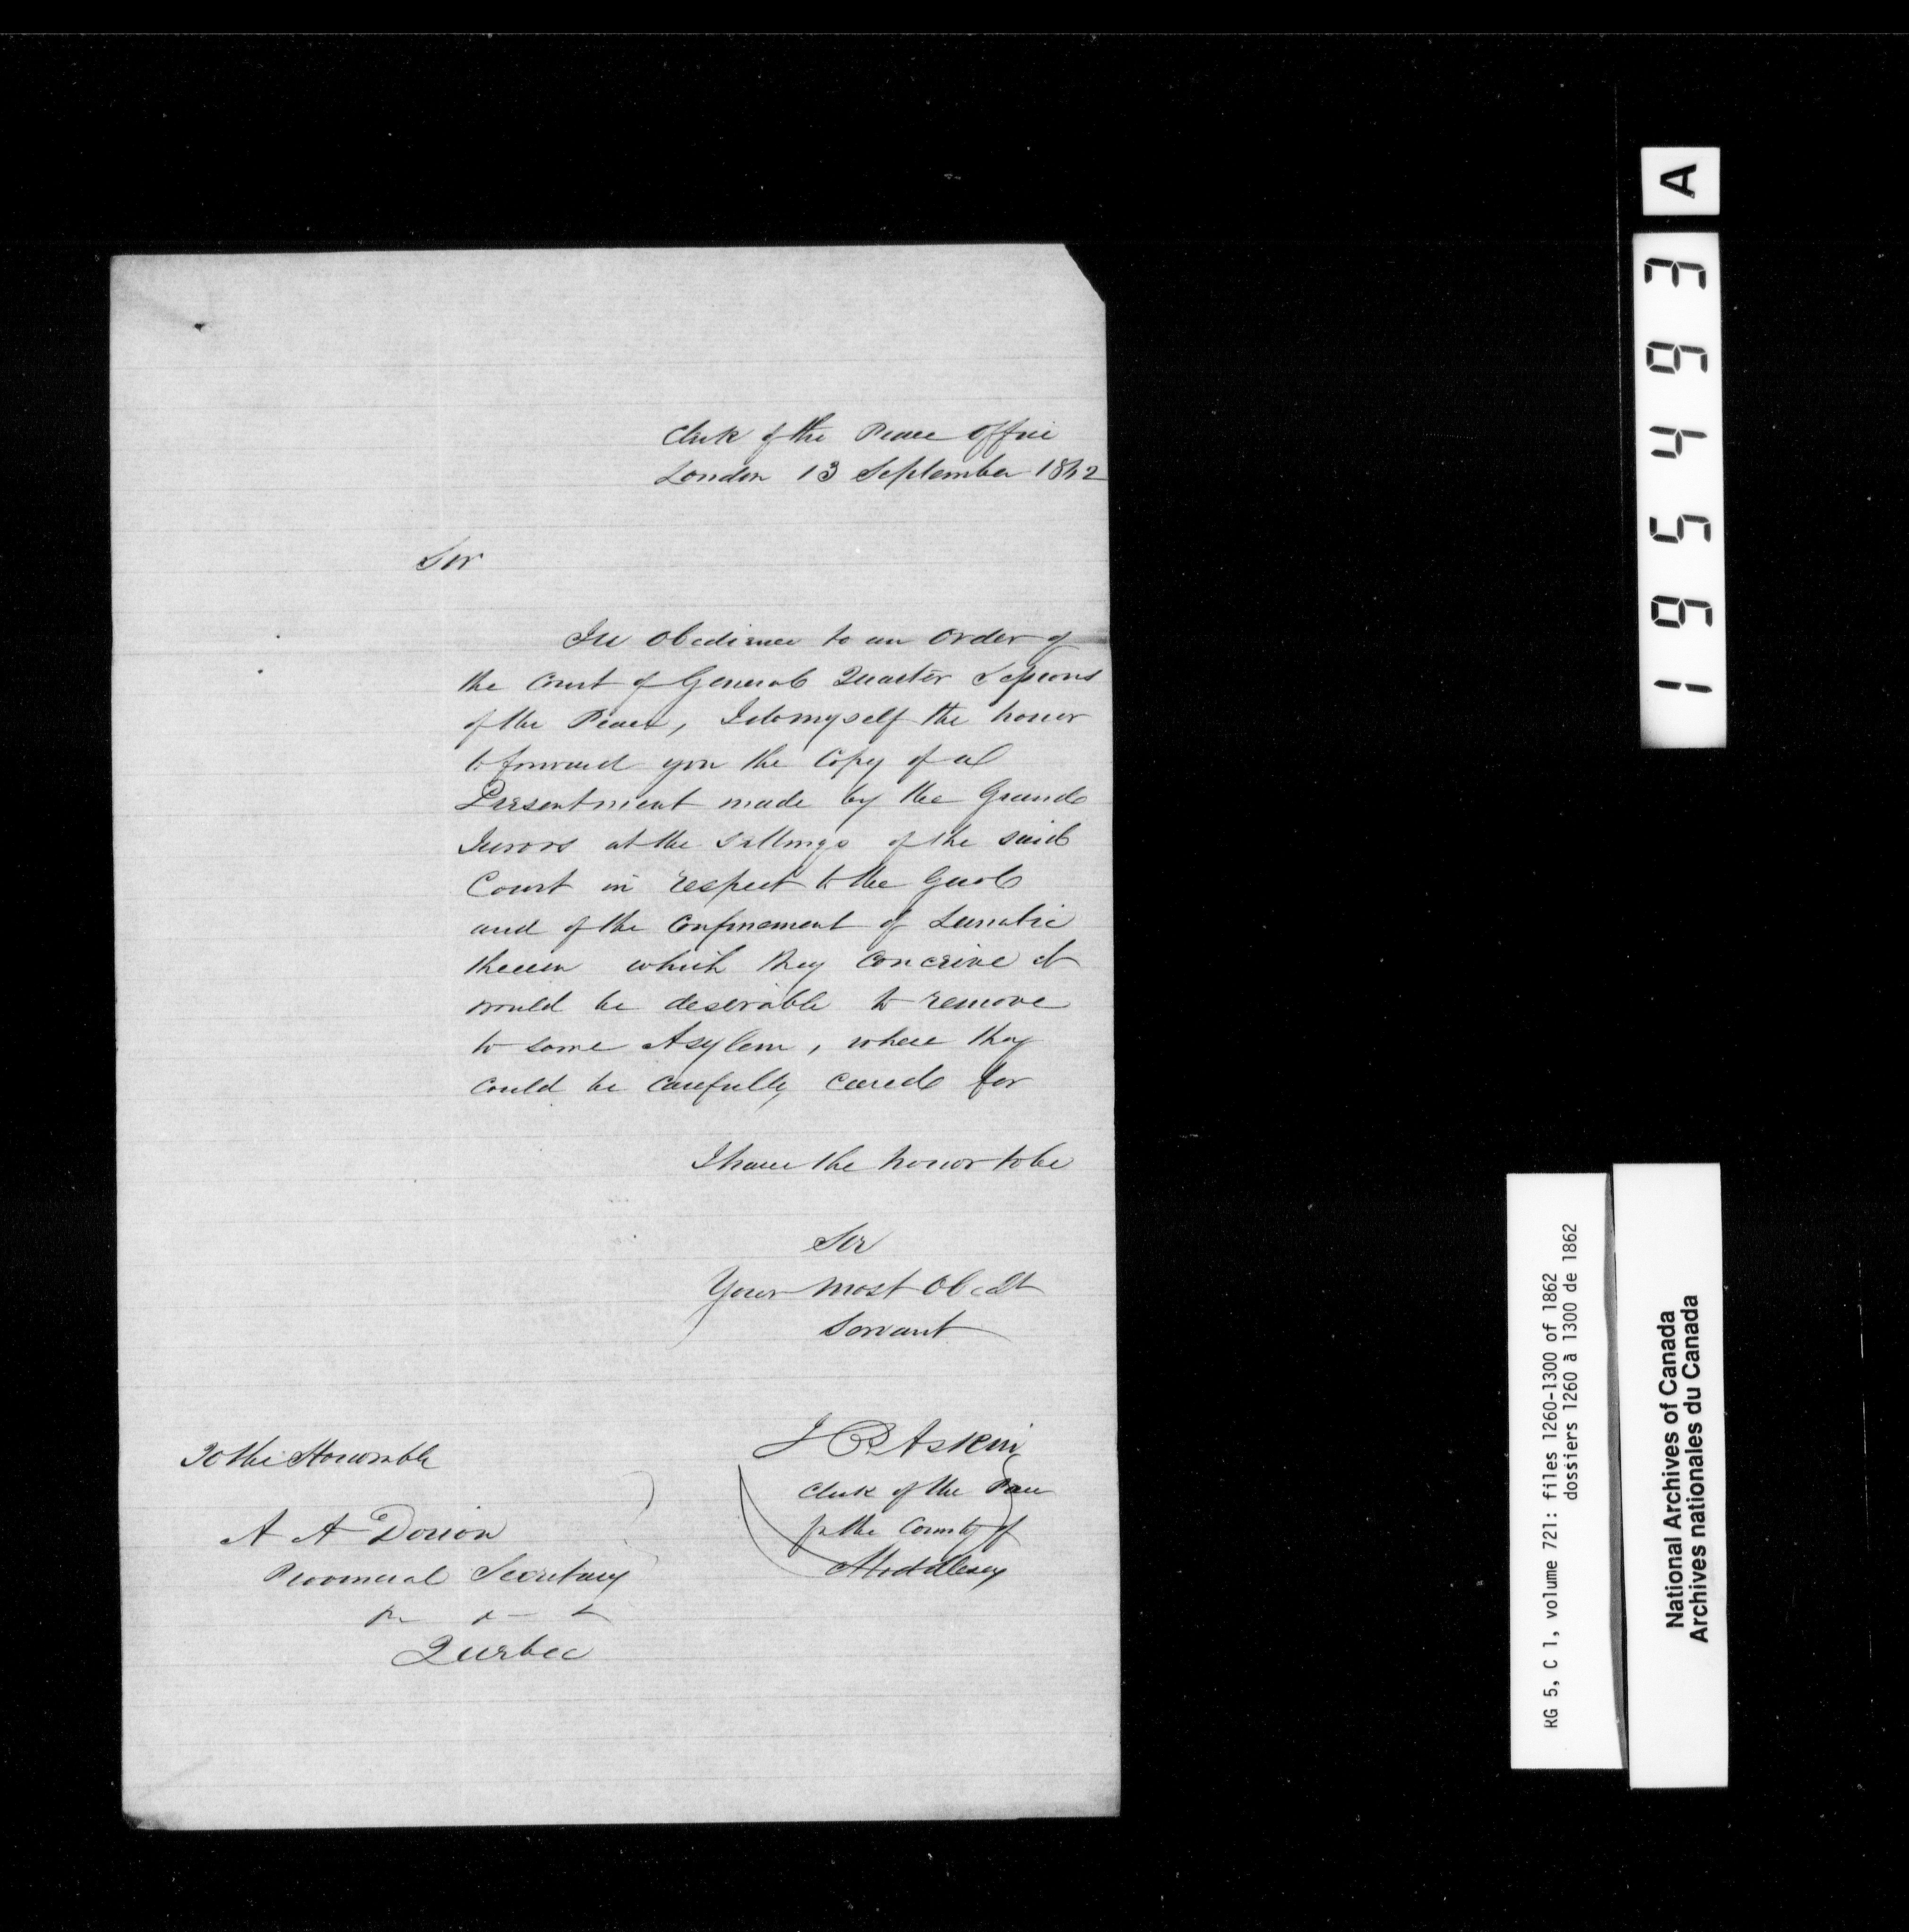 Clerk of the Peace Office
London 13 September 1862
Sir
In obedience to an order of
the Court of General Quarter Sessions
of the Peace, I do myself the honor
to forward you the Copy of a
Presentment made by the Grand
Jurors at the sittings of the said
Court in respect to the Gaol
and of the confinement of Lunatic
therein which they conceive it
would be desirable to remove
to some Asylem, where they
could be carefully cared for
I have the honor to be
Sir
Your most Obedt
Servant
J B Askin
Clerk of the Peace
for the County of
Middlesex
To the Honorable
A A Dorion
Provincial Secretary
Quebec
A
1 9 5 4 9 3
RG 5, C 1, volume 721: files 1260-1300 of 1862
dossiers 1260 à 1300 de 1862
National Archives of Canada
Archives nationales du Canada